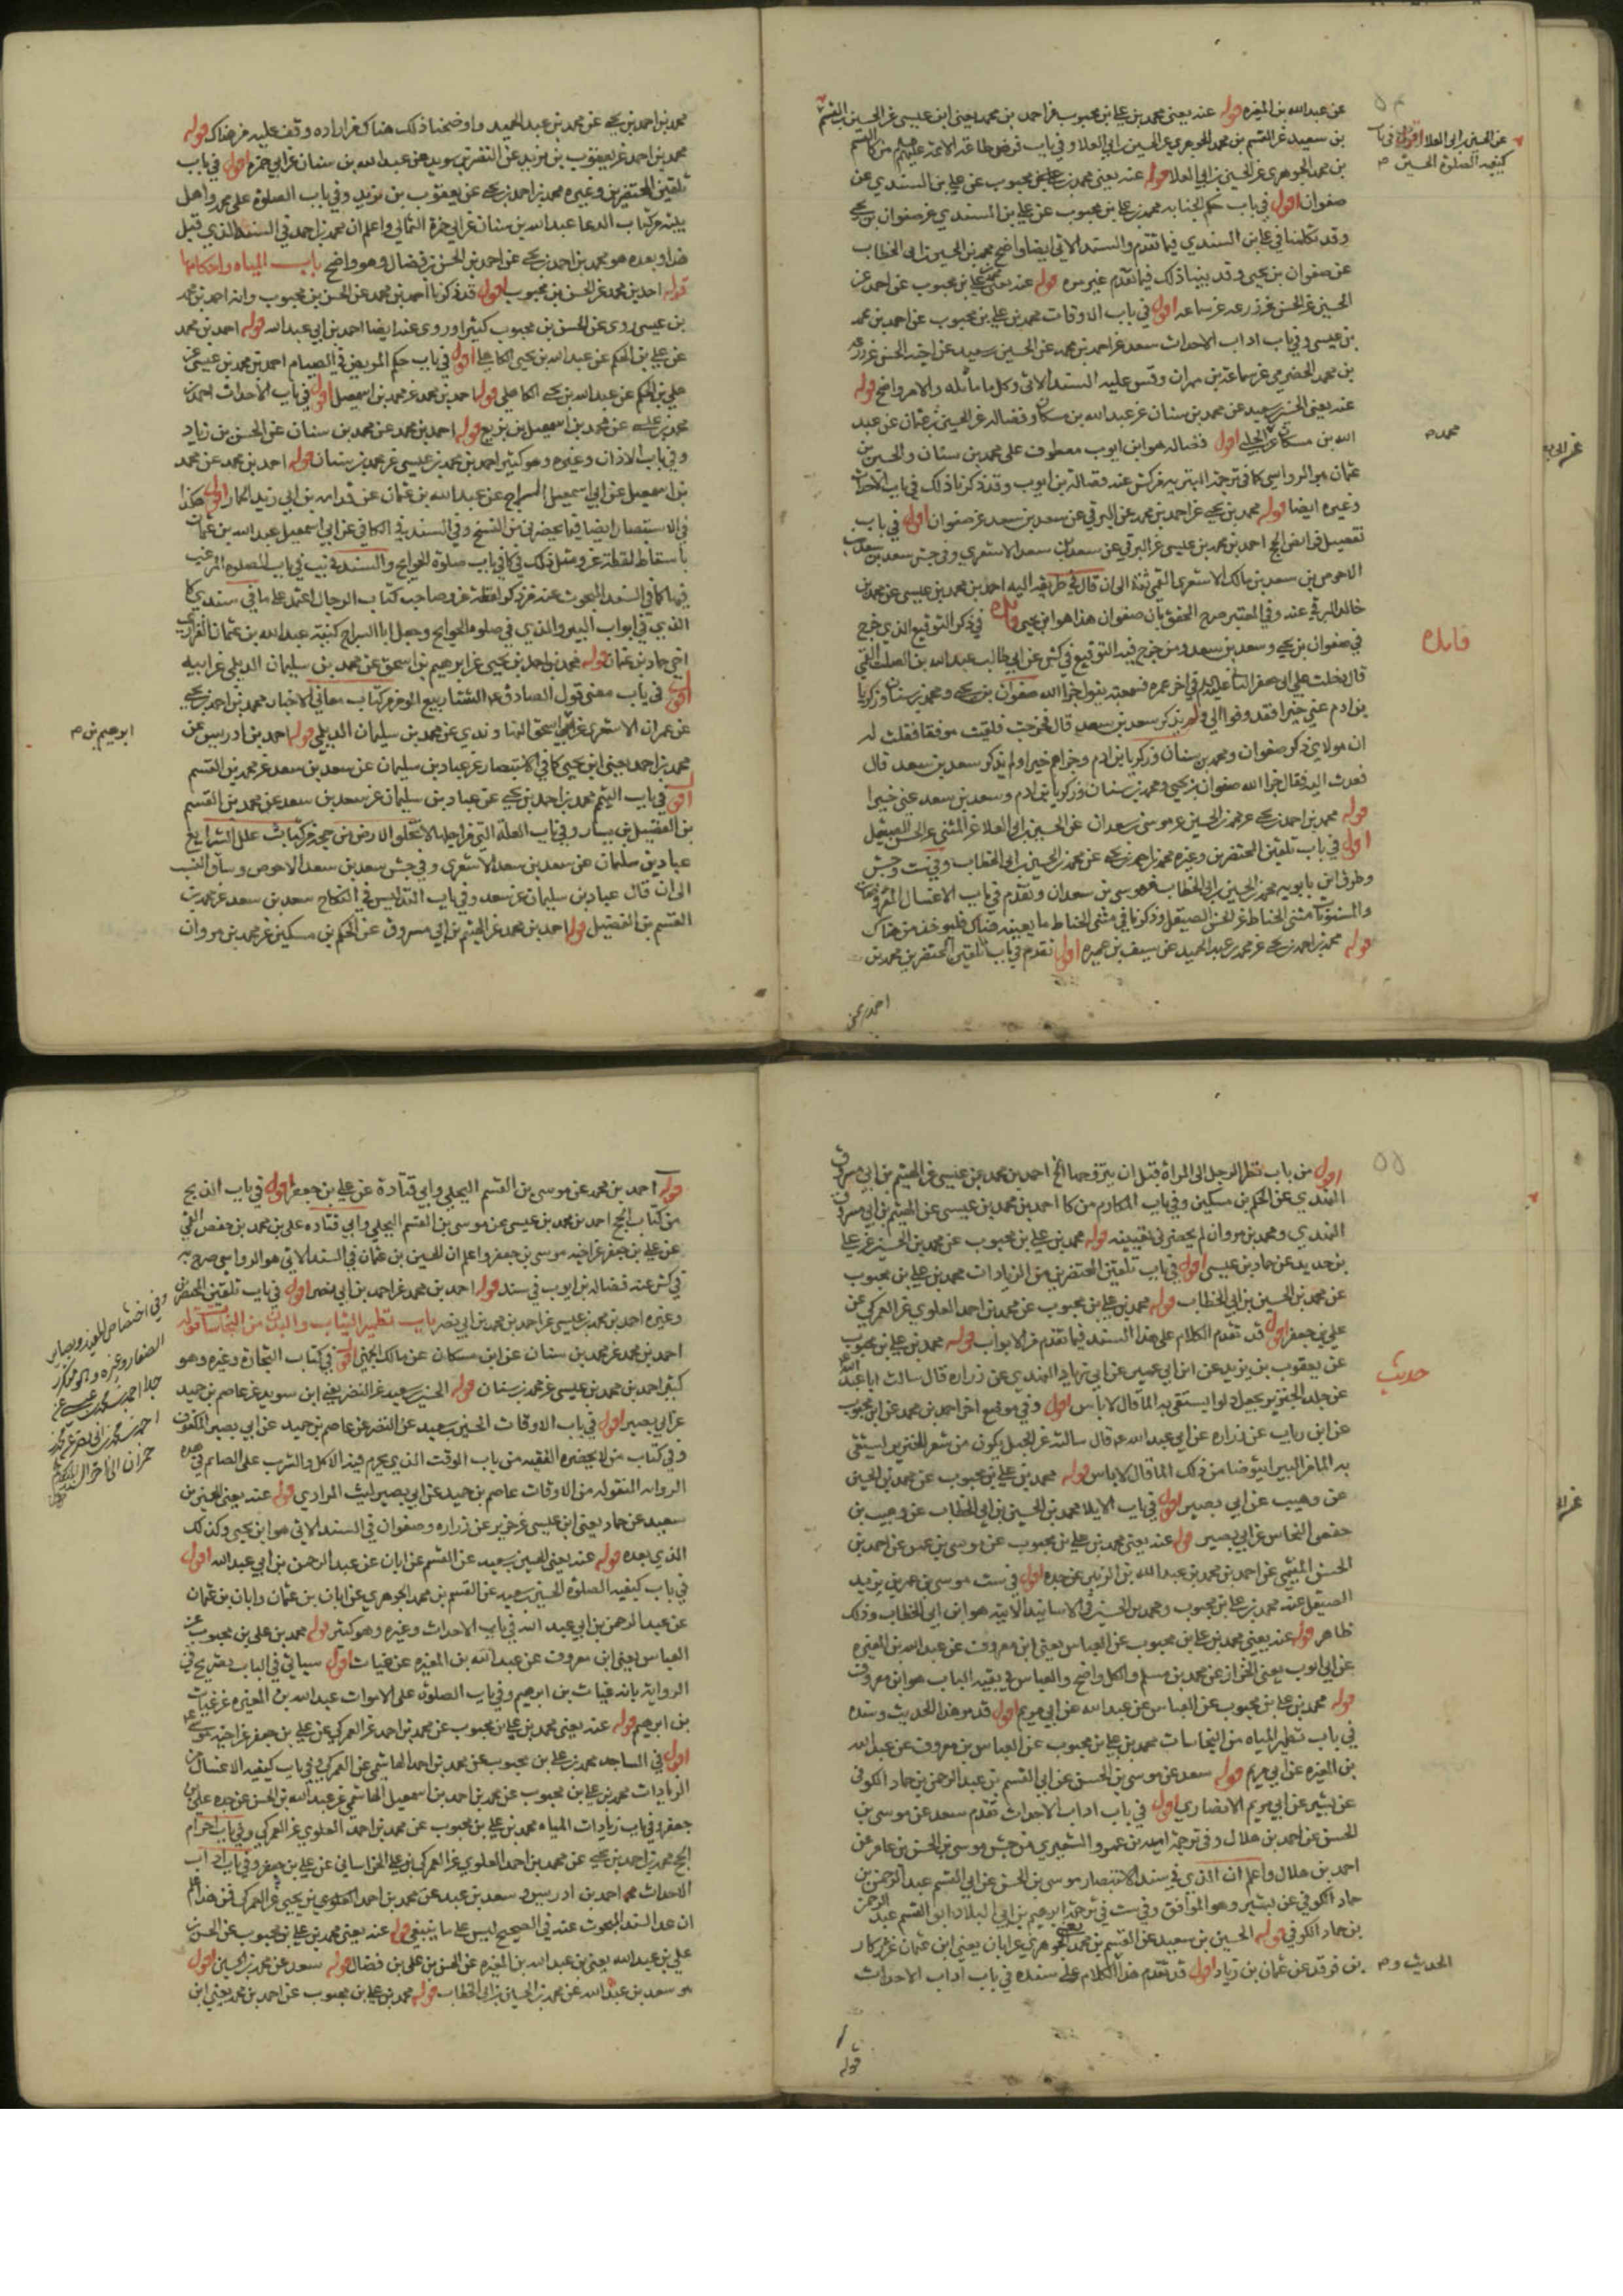 عن عبدالله بن المغيره قوله عنه يعني محمد بن علي بن محبوب عن احمد بن محمد يعني ابن عيسى عن الحسين
بن سعيد عن القسم بن محمد الجوهري عن الحسين بن ابي العلا وفي باب فرض طاعة الائمة
بن محمد الجوهري عن الحسين بن ابي العلا قوله عنه يعني محمد بن علي بن محبوب عن علي بن السندي عن
صفوان اقول في باب حكم الجنابه محمد بن علي بن محبوب عن علي بن السندي عن صفوان بن يحيى
وقد تكلمنا في علي بن السندي فيما تقدم والسند الاتي ايضا واضح محمد بن الحسين بن ابي الخطاب
عن صفوان بن يحيى وقد بينا ذلك فيما تقدم غير مره قوله عنه يعني محمد بن علي بن محبوب عن احمد عن
الحسين عن الحسن عن زرعه عن سماعه اقول في باب الاوقات محمد بن علي بن محبوب عن احمد بن محمد
بن عيسى وفي باب اداب الاحداث سعد عن احمد بن محمد عن الحسين بن سعيد عن اخيه الحسن عن زرعه
بن محمد الحضرمي عن سماعة بن مهران وقس عليه السند الاتي وكل ما ماثله والامر واضح قوله
عنه يعني الحسين بن سعيد عن محمد بن سنان عن عبدالله بن مسكان وفضاله عن الحسين بن عثمان عن عبد
الله بن مسكان عن الحلبي اقول فضاله هو ابن ايوب معطوف على محمد بن سنان والحسين بن
عثمان هو الرواسي كما في ترجمة البهرية من كش عنه فضالة بن ايوب وقد ذكرنا ذلك في باب الاحداث
وغيره ايضا قوله محمد بن يحيى عن احمد بن محمد عن البرقي عن سعد بن سعد عن صفوان اقول في باب
تفصيل فرائض الحج احمد بن محمد بن عيسى عن البرقي عن سعد بن سعد الاشعري وفي جش سعد بن سعد بن
الاحوص بن سعد بن مالك الاشعري القمي ثقة الى ان قال في طريقه اليه احمد بن محمد بن عيسى عن محمد بن
خالد البرقي عنه وفي المعتبر صرح المحقق بان صفوان هذا هو ابن يحيى فائده في ذكر التوقيع الذي خرج
في صفوان بن يحيى وسعد بن سعد ومن خرج فيه التوقيع في كش عن ابي طالب عبد الله بن الصلت القمي
قال دخلت على ابي جعفر الثاني عليه السلام في اخر عمره فسمعته يقول جزا الله صفوان بن يحيى ومحمد بن سنان وزكريا
بن ادم عني خيرا فقد وفوا لي ولم يذكر سعد بن سعد قال فخرجت فلقيت موفقا فقلت له
ان مولاي ذكر صفوان ومحمد بن سنان وزكريا بن ادم وجزاهم خيرا ولم يذكر سعد بن سعد قال
فعدت اليه فقال جزا الله صفوان بن يحيى ومحمد بن سنان وزكريا بن ادم وسعد بن سعد عني خيرا
قوله محمد بن احمد بن يحيى عن محمد بن الحسين عن موسى بن سعدان عن الحسين بن ابي العلا عن المثنى عن الحسن الصيقل
اقول في باب تلقين المحتضرين وغيره محمد بن احمد بن يحيى عن محمد بن الحسين بن ابي الخطاب وفي ست وجش
وطرق ابن بابويه محمد بن الحسين بن ابي الخطاب عن موسى بن سعدان وتقدم في باب الاغسال المفروضات
والمسنونات مثنى الحناط عن الحسن الصيقل وذكرنا في مثنى الحناط ما يعينه هناك فليوخذ من هناك
قوله محمد بن احمد بن يحيى عن محمد بن عبد الحميد عن سيف بن عميره اقول تقدم في باب تلقين المحتضرين محمد بن
احمد بن يحيى
عن الحسين بن ابي العلا اقول في باب
كيفيه الصلوة الحسين م
محمد م
فائده
محمد بن احمد بن يحيى عن محمد بن عبد الحميد واوضحنا ذلك هناك فمن اراده وقف عليه من هناك قوله
محمد بن احمد عن يعقوب بن يزيد عن النضر بن سويد عن عبدالله بن سنان عن ابي حمزه اقول في باب
تلقين المحتضرين وغيره محمد بن احمد بن يحيى عن يعقوب بن يزيد وفي باب الصلوة على محمد واهل
بيته من كتاب الدعا عبدالله بن سنان عن ابي حمزة الثمالي واعلم ان محمد بن احمد في السند الذي قبل
هذا وبعده هو محمد بن احمد بن يحيى عن احمد بن الحسن بن فضال وهو واضح باب المياه واحكامها
قوله احمد بن محمد عن الحسن بن محبوب اقول قد ذكرنا احمد بن محمد عن الحسن بن محبوب وانه احمد بن محمد
بن عيسى روى عن الحسن بن محبوب كثيرا وروى عنه ايضا احمد بن ابي عبدالله قوله احمد بن محمد
عن علي بن الحكم عن عبدالله بن يحيى الكاهلي اقول في باب حكم المريض في الصيام احمد بن محمد بن عيسى عن
علي بن الحكم عن عبدالله بن يحيى الكاهلي قوله احمد بن محمد عن محمد بن اسمعيل اقول في باب الاحداث احمد بن
محمد بن عيسى عن محمد بن اسمعيل بن بزيع قوله احمد بن محمد عن محمد بن سنان عن الحسن بن زياد
وفي باب الاذان وغيره وهو كثير احمد بن محمد بن عيسى عن محمد بن سنان قوله احمد بن محمد عن محمد
بن اسمعيل عن ابي اسمعيل السراج عن عبدالله بن عثمان عن قدامه بن ابي زيد الحمار اقول هكذا
في الاستبصار ايضا فيما يحضرني من النسخ وفي السند في الكافي عن ابي اسمعيل عبدالله بن عثمان
باسقاط لفظة عن ومثل ذلك في كا في باب صلوة الحوايج والسند في يب في باب الصلوة المرغب
فيها كما في السند المبحوث عنه من ذكر لفظة عن وصاحب كتاب الرجال اعتمد على ما في سندي كا
الذي في ابواب البير والذي في صلوه الحوايج وجعل ابا السراج كنية عبدالله بن عثمان الفزاري
اخي حماد بن عثمان قوله محمد بن احمد بن يحيى عن ابرهيم بن اسحق عن محمد بن سليمان الديلمي عن ابيه
اقول في باب معنى قول الصادق الشتا ربيع المومن من كتاب معاني الاخبار محمد بن احمد بن يحيى
عن عمران الاشعري عن ابي اسحق النهاوندي عن محمد بن سليمان الديلمي قوله احمد بن ادريس عن
محمد بن احمد يعني ابن يحيى كما في الاستبصار عن عباد بن سليمان عن سعد بن سعد عن محمد بن القسم
اقول في باب التيمم محمد بن احمد بن يحيى عن عباد بن سليمان عن سعد بن سعد عن محمد بن القسم
بن الفضيل بن يسار وفي باب العلة التي من اجلها لا تخلو الارض من حجة من كتاب علل الشرايع
عباد بن سلمان عن سعد بن سعد الاشعري وفي جش سعد بن سعد الاحوص وساق النسب
الى ان قال عباد بن سليمان عن سعد وفي باب التدليس في النكاح سعد بن سعد عن محمد بن
القسم بن الفضيل قوله احمد بن محمد عن الهيثم بن ابي مسروق عن الحكم بن مسكين عن محمد بن مروان
ابرهيم بن م
اقول من باب نظر الرجل الى المراة قبل ان يتزوجها الخ احمد بن محمد بن عيسى عن الهيثم بن ابي مسروق
النهدي عن الحكم بن مسكين وفي باب المكارم من كا احمد بن محمد بن عيسى عن الهيثم بن ابي مسروق
النهدي ومحمد بن مروان لم يحضرني تعيينه قوله محمد بن علي بن محبوب عن محمد بن الحسين عن علي
بن حديد عن حماد بن عيسى اقول في باب تلقين المحتضرين من الزيادات محمد بن علي بن محبوب
عن محمد بن الحسين بن ابي الخطاب قوله محمد بن علي بن محبوب عن محمد بن احمد العلوي عن العمركي عن
علي بن جعفر اقول قد تقدم الكلام على هذا السند فيما تقدم من الابواب قوله محمد بن علي بن محبوب
عن يعقوب بن يزيد عن ابن ابي عمير عن ابي زياد النهدي عن زراره قال سالت ابا عبدالله
عن جلد الخنزير يجعل دلوا يستقى به الما قال لا باس اقول وفي موضع اخر احمد بن محمد عن ابن محبوب
عن ابن رياب عن زراره عن ابي عبدالله قال سالته عن الحبل يكون من شعر الخنزير يستقى
به الما من البير ايتوضا من ذلك الما قال لا باس قوله محمد بن علي بن محبوب عن محمد بن الحسين
عن وهيب عن ابي بصير اقول في باب الايلا محمد بن الحسين بن ابي الخطاب عن وهيب بن
حفص النحاس عن ابي بصير قوله عنه يعني محمد بن علي بن محبوب عن موسى بن عمر عن احمد بن
الحسن الميثمي عن احمد بن محمد بن عبدالله بن الزبير عن جده اقول في ست موسى بن عمر بن يزيد
الصيقل عنه محمد بن علي بن محبوب ومحمد بن الحسين في الاسانيد الاتية هو ابن ابي الخطاب وذلك
ظاهر قوله عنه يعني محمد بن علي بن محبوب عن العباس يعني ابن معروف عن عبدالله بن المغيره
عن ابي ايوب يعني الخزاز عن محمد بن مسلم والكل واضح والعباس في بقيه الباب هو ابن معروف
قوله محمد بن علي بن محبوب عن العباس عن عبدالله عن ابي مريم اقول قد مر هذا الحديث وسنده
في باب تطهير المياه من النجاسات محمد بن علي بن محبوب عن العباس بن معروف عن عبدالله
بن المغيره عن ابي مريم قوله سعد عن موسى بن الحسن عن ابي القسم بن عبد الرحمن بن حماد الكوفي
عن بشير عن ابي مريم الانصاري اقول في باب اداب الاحداث تقدم سعد عن موسى بن
الحسن عن احمد بن هلال وفي ترجمة اميه بن عمرو الشعيري من جش موسى بن الحسن بن عامر عن
احمد بن هلال واعلم ان الذي في سند الاستبصار موسى بن الحسن عن ابي القسم عبد الرحمن بن
حماد الكوفي عن بشير وهو الموافق وفي ست في ترجمة ابرهيم بن ابي البلاد ابو القسم عبد الرحمن
بن حماد الكوفي قوله الحسين بن سعيد عن القسم بن محمد يعني الجوهري عن ابان يعني ابن عثمان عن زكار
بن فرقد عن عثمان بن زياد اقول قد تقدم هذا الكلام على سنده في باب اداب الاحداث
قوله
حديث
الحديث و م
قوله احمد بن محمد عن موسى بن القسم البجلي وابي قتادة عن علي بن جعفر اقول في باب الذبح
من كتاب الحج احمد بن محمد بن عيسى عن موسى بن القسم البجلي وابي قتاده علي بن محمد بن حفص القمي
عن علي بن جعفر عن اخيه موسى بن جعفر واعلم ان الحسين بن عثمان في السند الاتي هو الرواسي صرح به
في كش عنه فضاله بن ايوب في سند قوله احمد بن محمد عن احمد بن ابي نصر اقول في باب تلقين المحتضرين
وغيره احمد بن محمد بن عيسى عن احمد بن محمد بن ابي نصر باب تطهير الثياب والبدن من النجاسات قوله
احمد بن محمد عن محمد بن سنان عن ابن مسكان عن مالك الجهني اقول في كتاب التجارة وغيره وهو
كثير احمد بن محمد بن عيسى عن محمد بن سنان قوله الحسين بن سعيد عن النضر يعني ابن سويد عن عاصم بن حميد
عن ابي بصير اقول في باب الاوقات الحسين بن سعيد عن النضر عن عاصم بن حميد عن ابي بصير المكفوف
وفي كتاب من لا يحضره الفقيه من باب الوقت الذي يحرم فيه الاكل والشرب على الصايم في هذه
الروايه المنقوله من الاوقات عاصم بن حميد عن ابي بصير ليث المرادي قوله عنه يعني الحسين بن
سعيد عن حماد يعني ابن عيسى عن حريز عن زراره وصفوان في السند الاتي هو ابن يحيى وكذلك
الذي بعده قوله عنه يعني الحسين بن سعيد عن القسم عن ابان عن عبد الرحمن بن ابي عبدالله اقول
في باب كيفيه الصلوة الحسين بن سعيد عن القسم بن محمد الجوهري عن ابان بن عثمان وابان بن عثمان
عن عبد الرحمن بن ابي عبد الله في باب الاحداث وغيره وهو كثير قوله محمد بن علي بن محبوب عن
العباس يعني ابن معروف عن عبدالله بن المغيره عن غياث اقول سياتي في الباب تصريح في
الرواية بانه غياث بن ابرهيم وفي باب الصلوة على الاموات عبدالله بن المغيره عن غياث
بن ابرهيم قوله عنه يعني محمد بن علي بن محبوب عن محمد بن احمد عن العمركي عن علي بن جعفر عن اخيه موسى
اقول في المساجد محمد بن علي بن محبوب عن محمد بن احمد الهاشمي عن العمركي وفي باب كيفيه الاغتسال من
الزيادات محمد بن علي بن محبوب عن محمد بن احمد بن اسمعيل الهاشمي عن عبدالله بن الحسن عن جده علي بن
جعفر وفي باب زيادات المياه محمد بن علي بن محبوب عن محمد بن احمد العلوي عن العمركي وفي باب احرام
الحج محمد بن احمد بن يحيى عن محمد بن احمد العلوي عن العمركي بن علي الخراساني عن علي بن جعفر وفي باب اداب
الاحداث احمد بن ادريس وسعد بن عبد عن محمد بن احمد العلوي بن يحيى عن العمركي فمن هذا علم
ان عد السند المبحوث عنه في الصحيح ليس على ما ينبغي قوله عنه يعني محمد بن علي بن محبوب عن الحسن بن
علي بن عبدالله يعني بن عبدالله بن المغيره عن الحسن بن علي بن فضال قوله سعد عن محمد بن الحسين اقول
هو سعد بن عبدالله عن محمد بن الحسين بن ابي الخطاب قوله محمد بن علي بن محبوب عن احمد بن محمد يعني ابن
وفي اختصاص للمفيد وبصاير
الصفار وغيره وهو متكرر
جدا احمد بن محمد بن عيسى عن
احمد بن محمد بن ابي نصر عن محمد بن
حمران